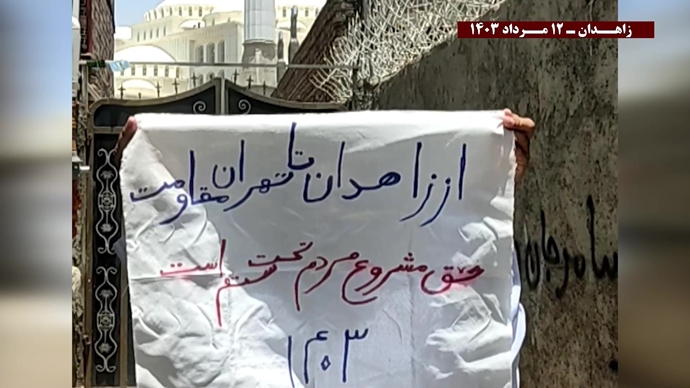 زاهـدان ــ ۱۲ مـرداد ۱۴۰۳
از زاهدان تا تهران مقاومت
حق مشروع مردم تحت ستم است
۱۴۰۳